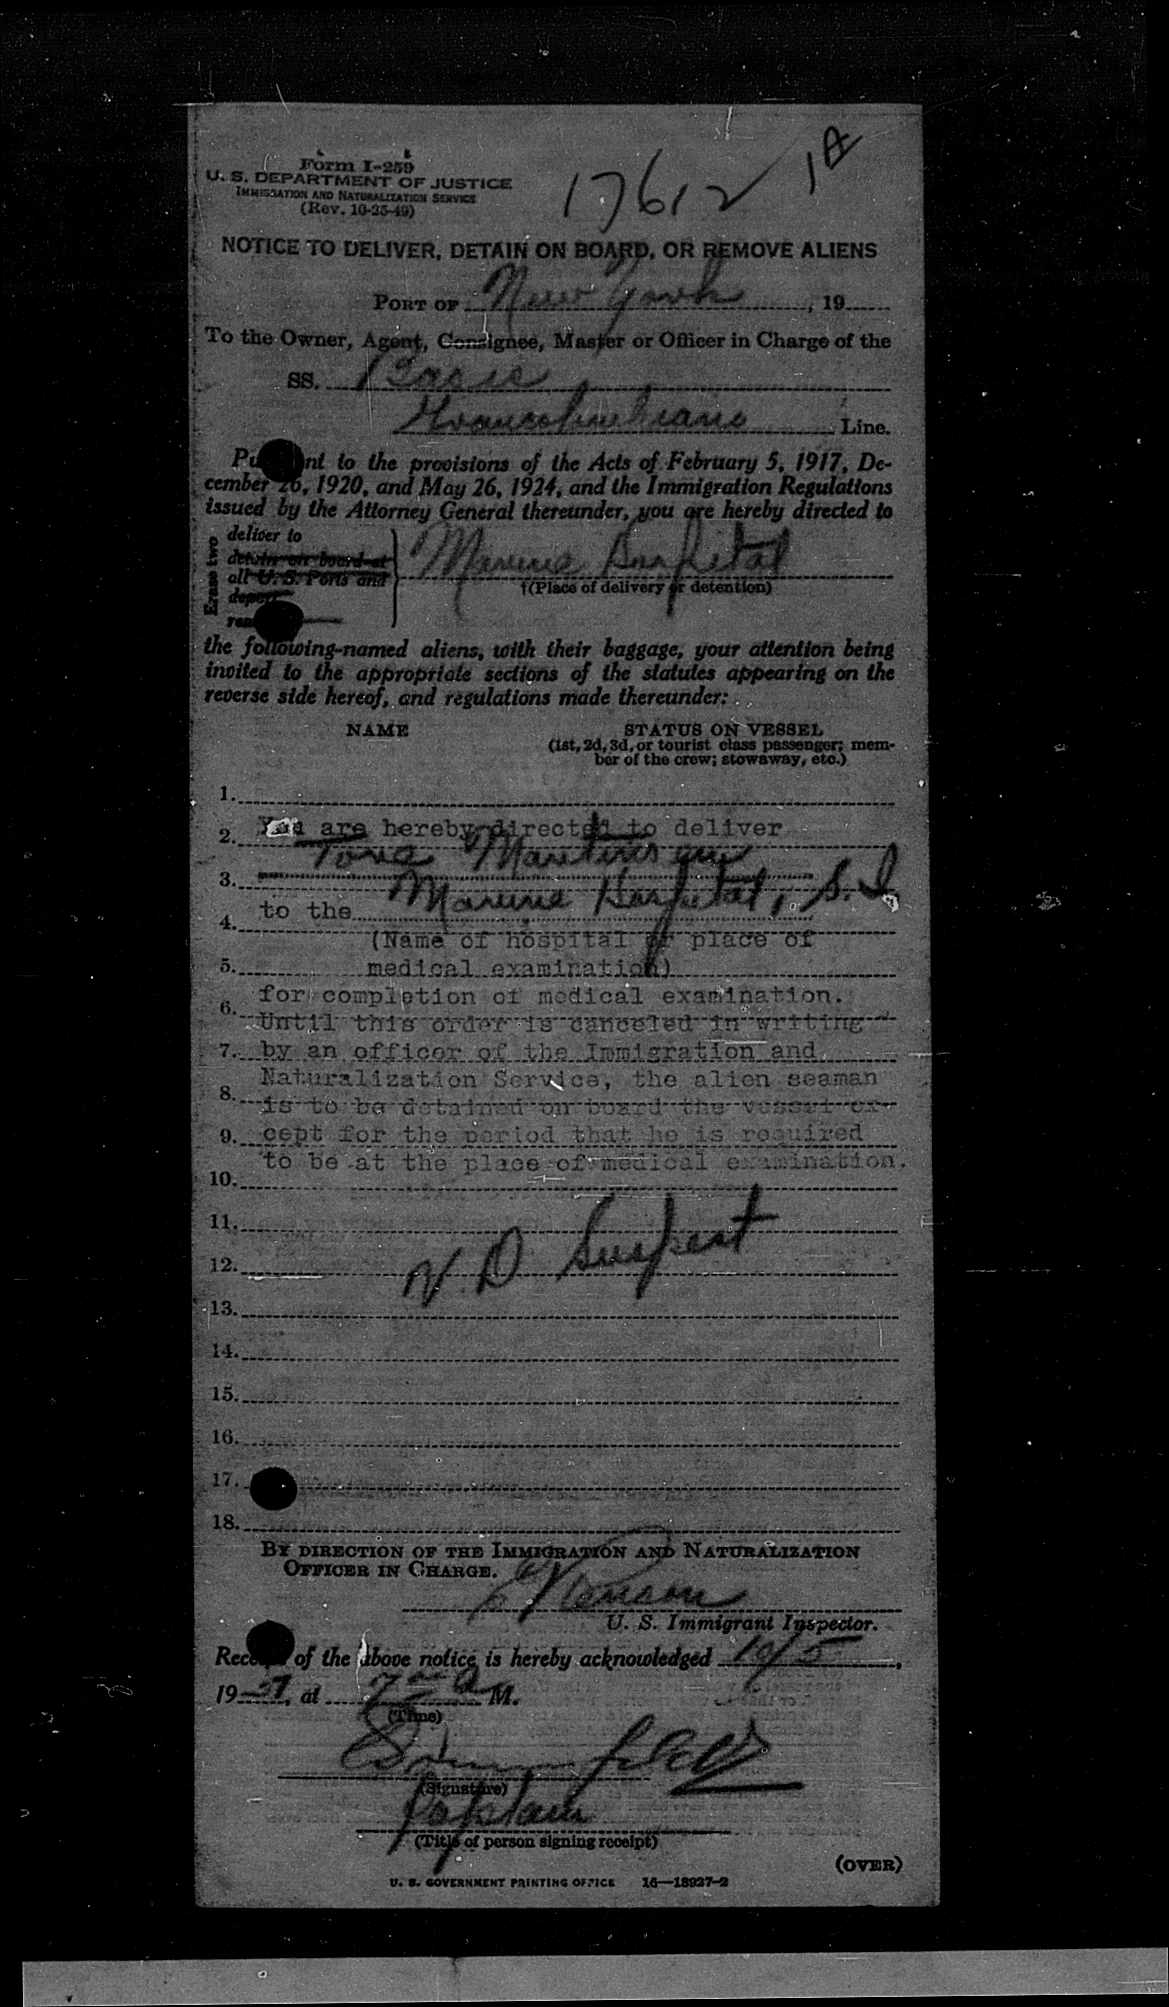 Form I-259
U. S. DEPARTMENT OF JUSTICE
IMMIGRATION AND NATURALIZATION SERVICE
(Rev. 10-25-49)
17612
1A
NOTICE TO DELIVER, DETAIN ON BOARD, OR REMOVE ALIENS
PORT OF New York, 19
To the Owner, Agent, Consignee, Master or Officer in Charge of the
SS.
Line.
Pu nt to the provisions of the Acts of February 5, 1917, De-
cember 26, 1920, and May 26, 1924, and the Immigration Regulations
issued by the Attorney General thereunder, you are hereby directed to
Erase two
deliver to
detain on board at
all U. S. Ports and
deport
Marine Hospital
†(Place of delivery or detention)
the following-named aliens, with their baggage, your attention being
invited to the appropriate sections of the statutes appearing on the
reverse side hereof, and regulations made thereunder:
NAME
STATUS ON VESSEL
(1st, 2d, 3d, or tourist class passenger; mem-
ber of the crew; stowaway, etc.)
1.
2. You are hereby directed to deliver
Tova
3.
to the Marine Hospital, S.I.
4.
(Name of hospital or place of
5. medical examination)
for completion of medical examination.
6.
Until this order is canceled in writing
7. by an officer of the Immigration and
Naturalization Service, the alien seaman
8.
is to be detained on board the vessel ex-
9. cept for the period that he is required
to be at the place of medical examination.
10.
11.
V. D Suspect
12.
13.
14.
15.
16.
17.
18.
BY DIRECTION OF THE IMMIGRATION AND NATURALIZATION
OFFICER IN CHARGE.
U. S. Immigrant Inspector.
Rece of the above notice is hereby acknowledged 10/5,
19 57, at 7 A M.
(Time)
(Signature)
Captain
(Title of person signing receipt)
(OVER)
U. S. GOVERNMENT PRINTING OFFICE 16—18927-2